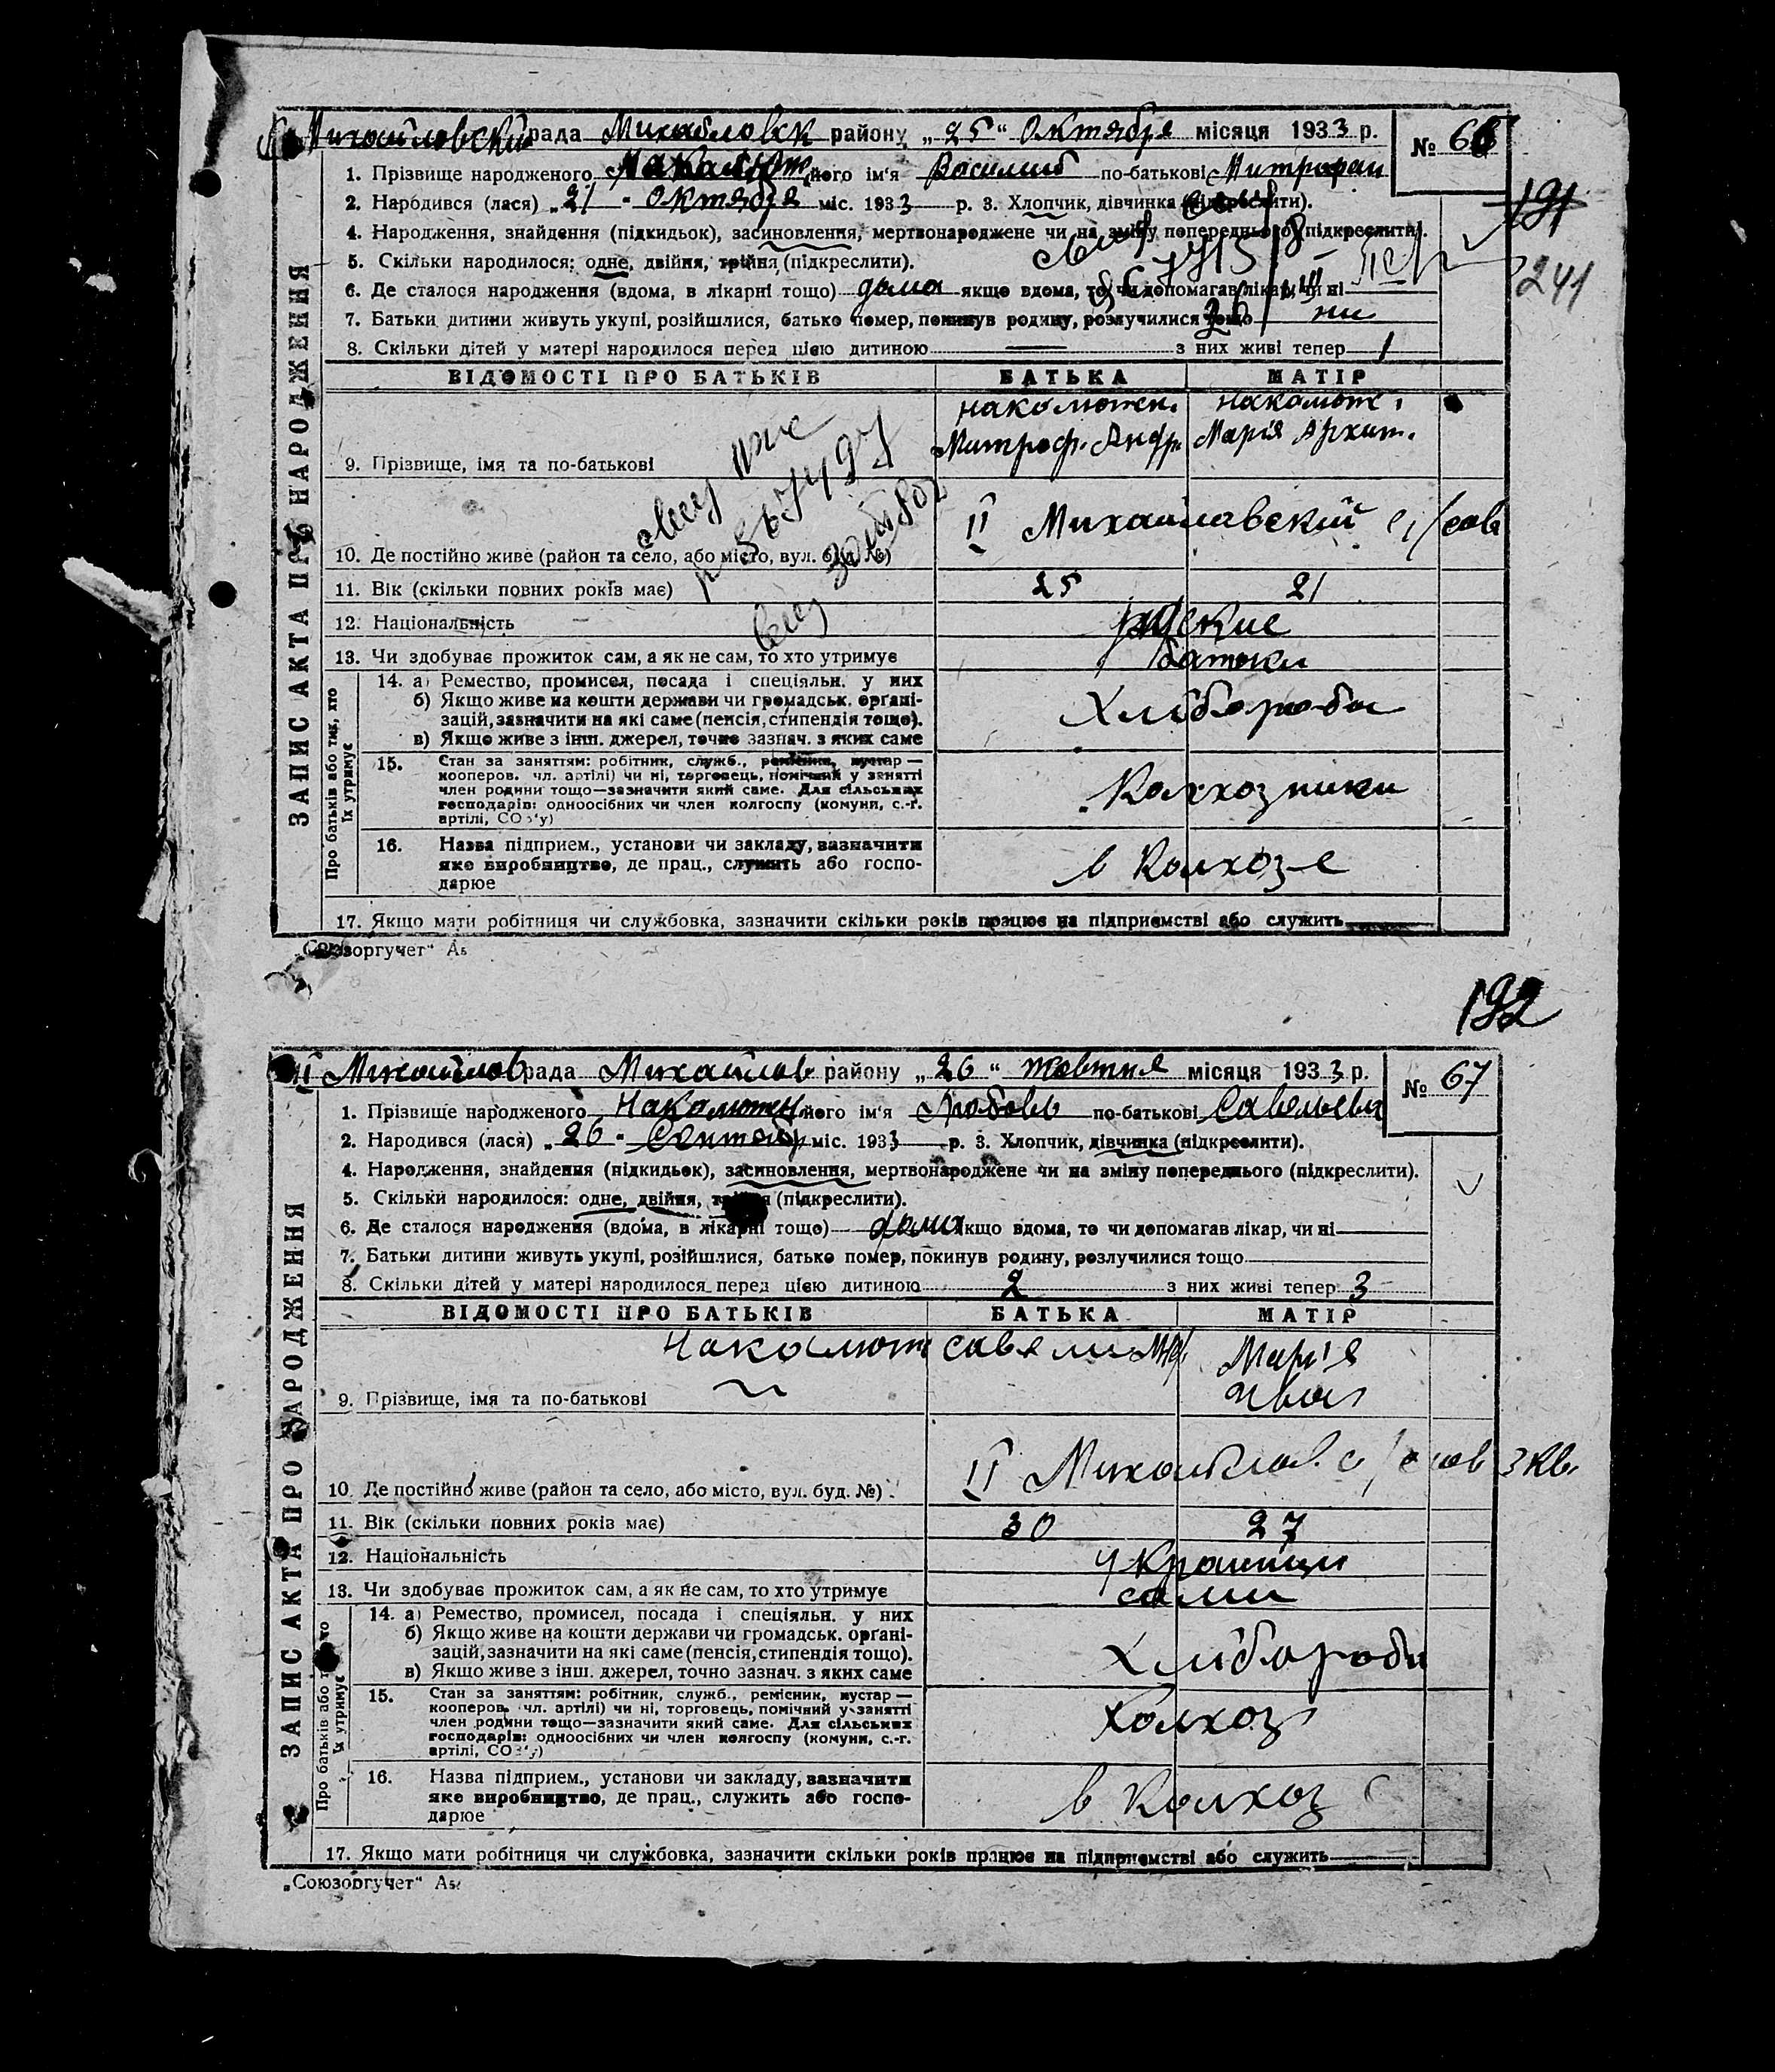 Михайловский рада Михайловск району „25“ Октября місяця 1933 р. № 66
1. Прізвище народженого Накалюжн його ім'я Василий по-батькові Митрофан
2. Народився (лася) „21 - октября міс. 1933 р. 3. Хлопчик, дівчинка (підкреслити).
191
4. Народження, знайдення (підкидьок), засиновлення, мертвонароджене чи на зміну попереднього (підкреслити).
5. Скільки народилося: одне, двійня, трійня (підкреслити).
241
6. Де сталося народження (вдома, в лікарні тощо) дома якщо вдома, то чи допомагав лікар, чи ні
7. Батьки дитини живуть укупі, розійшлися, батько помер, покинув родину, розлучилися тощо ни
8. Скільки дітей у матері народилося перед цією дитиною — з них живі тепер 1
ВІДОМОСТІ ПРО БАТЬКІВ БАТЬКА МАТІР
Митроф. Андр. Марія Архип.
9. Прізвище, імя та по-батькові
II Михайлавский с/сов
10. Де постійно живе (район та село, або місто, вул. буд. №)
11. Вік (скільки повних років має) 25 21
12. Національність руские
13. Чи здобуває прожиток сам, а як не сам, то хто утримує батьки
14. а) Ремество, промисел, посада і спеціяльн. у них
б) Якщо живе на кошти держави чи громадськ. органі-
зацій, зазначити на які саме (пенсія, стипендія тощо). Хлібороби
в) Якщо живе з інш. джерел, точно зазнач. з яких саме
15. Стан за заняттям: робітник, служб., ремісник, кустар —
кооперов. чл. артілі) чи ні, торговець, помічний у занятті
член родини тощо—зазначити який саме. Для сільських Колхозники
господарів: одноосібних чи член колгоспу (комуни, с.-г.
артілі, СОЗ'у)
16. Назва підприєм., установи чи закладу, зазначити
яке виробництво, де прац., служить або госпо- в Колхозе
дарює
17. Якщо мати робітниця чи службовка, зазначити скільки років працює на підприємстві або служить
ЗАПИС АКТА ПРО НАРОДЖЕННЯ
Про батьків або тих, хто
їх утримує
„Союзоргучет“
192
II Михайлов рада Михайлов району „26“ жовтня місяця 1933 р. № 67
1. Прізвище народженого Накалюжн його ім'я Любовь по-батькові Савельевн
2. Народився (лася) „26 - Сентябр міс. 1933 р. 3. Хлопчик, дівчинка (підкреслити).
4. Народження, знайдення (підкидьок), засиновлення, мертвонароджене чи на зміну попереднього (підкреслити).
5. Скільки народилося: одне, двійня, трійня (підкреслити).
6. Де сталося народження (вдома, в лікарні тощо) дома якщо вдома, то чи допомагав лікар, чи ні
7. Батьки дитини живуть укупі, розійшлися, батько помер, покинув родину, розлучилися тощо
8. Скільки дітей у матері народилося перед цією дитиною 2 з них живі тепер 3
ВІДОМОСТІ ПРО БАТЬКІВ БАТЬКА МАТІР
Марія
9. Прізвище, імя та по-батькові
II Михайлов. с/сов 3 кв.
10. Де постійно живе (район та село, або місто, вул. буд. №)
11. Вік (скільки повних років має) 30 27
12. Національність Українци
13. Чи здобуває прожиток сам, а як не сам, то хто утримує сами
14. а) Ремество, промисел, посада і спеціяльн. у них
б) Якщо живе на кошти держави чи громадськ. органі-
зацій, зазначити на які саме (пенсія, стипендія тощо). Хлібороби
в) Якщо живе з інш. джерел, точно зазнач. з яких саме
15. Стан за заняттям: робітник, служб., ремісник, кустар —
кооперов. чл. артілі) чи ні, торговець, помічний у занятті Колхоз
член родини тощо—зазначити який саме. Для сільських
господарів: одноосібних чи член колгоспу (комуни, с.-г.
артілі, СОЗ'у)
16. Назва підприєм., установи чи закладу, зазначити
яке виробництво, де прац., служить або госпо- в Колхоз
дарює
17. Якщо мати робітниця чи службовка, зазначити скільки років працює на підприємстві або служить
ЗАПИС АКТА ПРО НАРОДЖЕННЯ
Про батьків або тих, хто
їх утримує
„Союзоргучет“